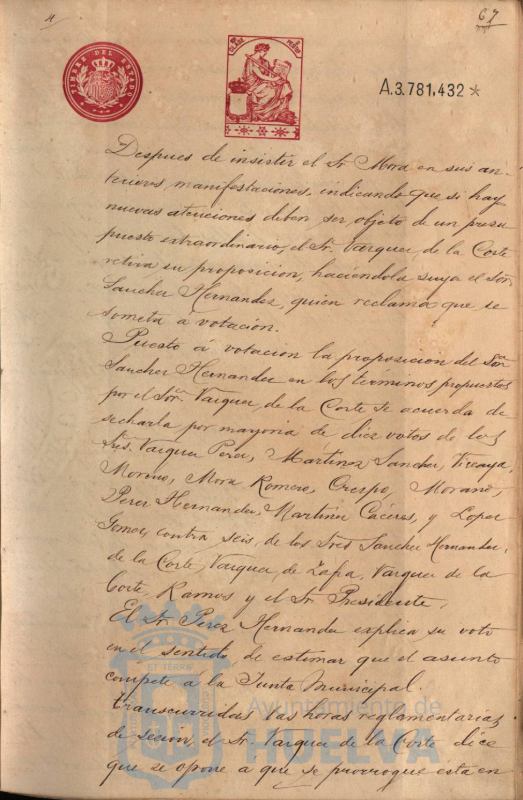 4
67
TIMBRE DEL ESTADO
A.3.781,432 *
Despues de insistir el Sr. Mora en sus an-
teriores manifestaciones, indicando que si hay
nuevas atenciones deben ser objeto de un presu
puesto extraordinario, el Sr. Vazquez de la Corte
retira su proposicion, haciéndola suya el Sor.
Sanchez Hernandez, quien reclama que se
someta á votación.
Puesto á votacion la proposicion del Sor.
Sanchez Hernandez en los términos propuestos
por el Sor. Vazquez de la Corte se acuerda de
secharla por mayoria de diez votos de los
Sres. Vazquez Perez, Martinez Sanchez, Vizcaya,
Moreno, Mora Romero, Crespo, Morano,
Perez Hernandez, Martinez Cáceres, y Lopez
Gomez, contra seis, de los Sres Sanchez Hernandez,
de la Corte, Vazquez de Zafra, Vazquez de la
Corte, Ramos y el Sr. Presidente.
El Sr. Perez Hernandez explica su voto
en el sentido de estimar que el asunto
compete a la Junta Municipal.
Transcurridas las horas reglamentarias
de secion, el Sr. Vazquez de la Corte dice
que se opone a que se prorrogue esta en
Ayuntamiento de
HUELVA